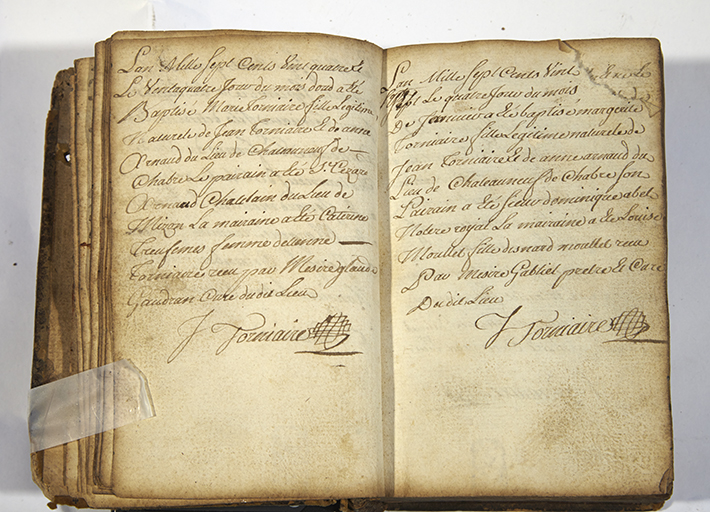 Lan Mille Sept Cents Vint quatre et
Le Vintaquatre Jour du mois doud a eté
Baptisé Marie Torniaire fille Legitime
Naturele de Jean Torniaire et de anne
Arnaud du Lieu de Chateauneuf de
Chabre Le pairain a eté Sr Cezare
Arnaud Chatelain du Lieu de
Mizon La mairaine a eté Caterine
femme
Torniaire receu par Mesire glaude
Gaudran Cure dudit Lieu
J Torniaire
Lan Mille Sept Cents Vint
Sept Le quatre Jour du mois
De Janvier a eté baptisé margerite
Torniaire fille Legitime naturele de
Jean Torniaire et de anne arnaud du
Lieu de Chateauneuf de Chabre Son
Pairain a eté Sieur dominique abel
Notere royal La mairaine a eté Louise
Moullet fille disnard moullet receu
Par Mesire Gabliel pretre et Cure
Dudit Lieu
J Torniaire